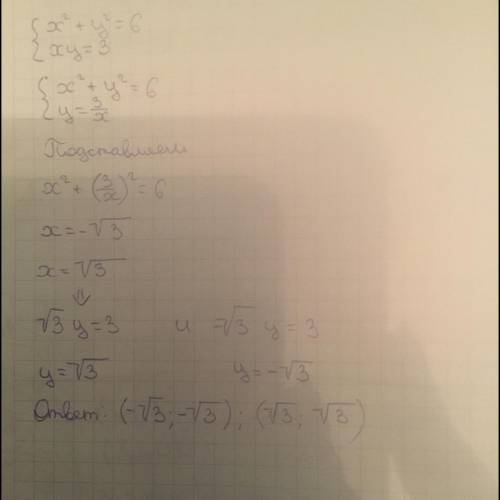 { x² + y² = 6
{ xy = 3
{ x² + y² = 6
{ y = 3/x
Подставляем
x² + (3/x)² = 6
x = -√3
x = √3
⇓
√3 y = 3 и -√3 y = 3
y = √3 y = -√3
Ответ: (-√3; -√3); (√3; √3)